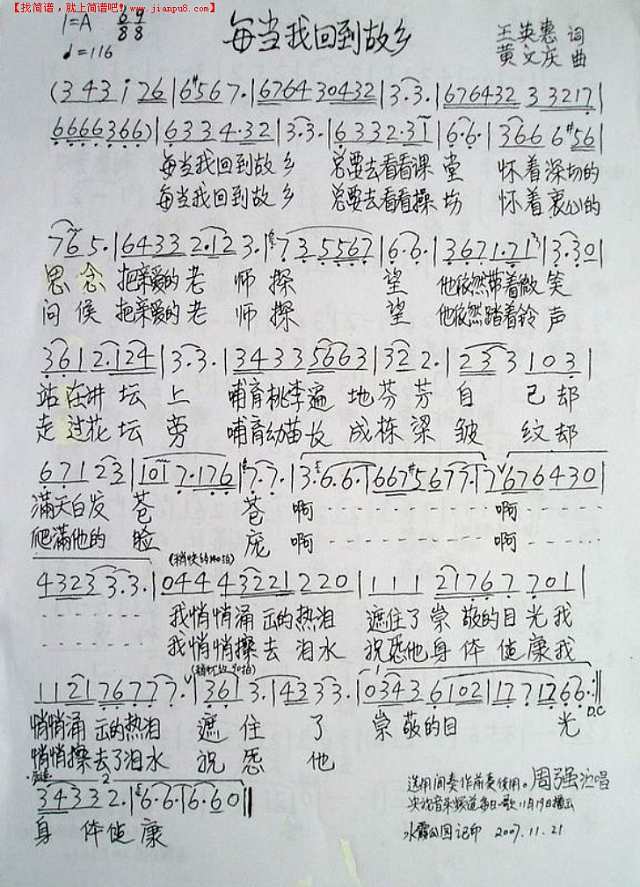 【找简谱，就上简谱吧！】www.jianpu8.com
1=A 6/8 9/8 每当我回到故乡 王英惠 词
♩=116 黄文庆 曲
(3 4 3 i 2 6 | 6 #5 6 7· | 6 7 6 4 3 0 4 3 2 | 3· 3· | 6 7 6 4 3 2 3 3 2 1 7 |
6 6 6 6 3 6 6) | 6 3 3 4· 3 2 | 3· 3· | 6 3 3 2· 3 1 | 6· 6· | 3 6 6 6 #5 6 |
每当我回到故乡 总要去看看课堂 怀着深切的
每当我回到故乡 总要去看看操场 怀着衷心的
7 6 5· | 6 4 3 3 2· 1 2 3· | 7 3 5 5 6 7 | 6· 6· | 3 6 7 1· 7 1 | 3· 3 0 |
思念 把亲爱的老师探望 他依然带着微笑
问候 把亲爱的老师探望 他依然踏着铃声
3 6 1 2· 1 2 4 | 3· 3· | 3 4 3 3 5 6 6 3 | 3 2 2· | 2 3 3 1 0 3 |
站在讲坛上 哺育桃李遍地芬芳 自己却
走过花坛旁 哺育幼苗长成栋梁 皱纹却
6 7 1 2 3 | 1 0 1 7· 1 7 6 | 7· 7· | 3· 6· 6· | 6 6 7 #5 6 7 7· | 7 6 7 6 4 3 0 |
满天白发苍苍 啊 啊
爬满他的脸庞 啊 啊
4 3 2 3 3· 3· | 0 4 4 4 3 2 2 1 2 2 0 | 1 1 1 2 1 7 6 7 7 0 1 |
我悄悄涌出的热泪 遮住了崇敬的目光我
我悄悄擦去泪水 祝愿他身体健康我
1 1 2 1 7 6 7 7 7· | 3 6 1 3· | 4 3 3 3· | 0 3 4 3 6 1 0 2 | 1 7 7 1 7 6 6· :|| D.C
悄悄涌出的热泪 遮住了崇敬的目光
悄悄擦去了泪水 祝愿他
3 4 3 3 2· | 6· 6· | 6· 6 0 ||
身体健康
选用间奏作前奏使用。周强演唱
2007.11.21